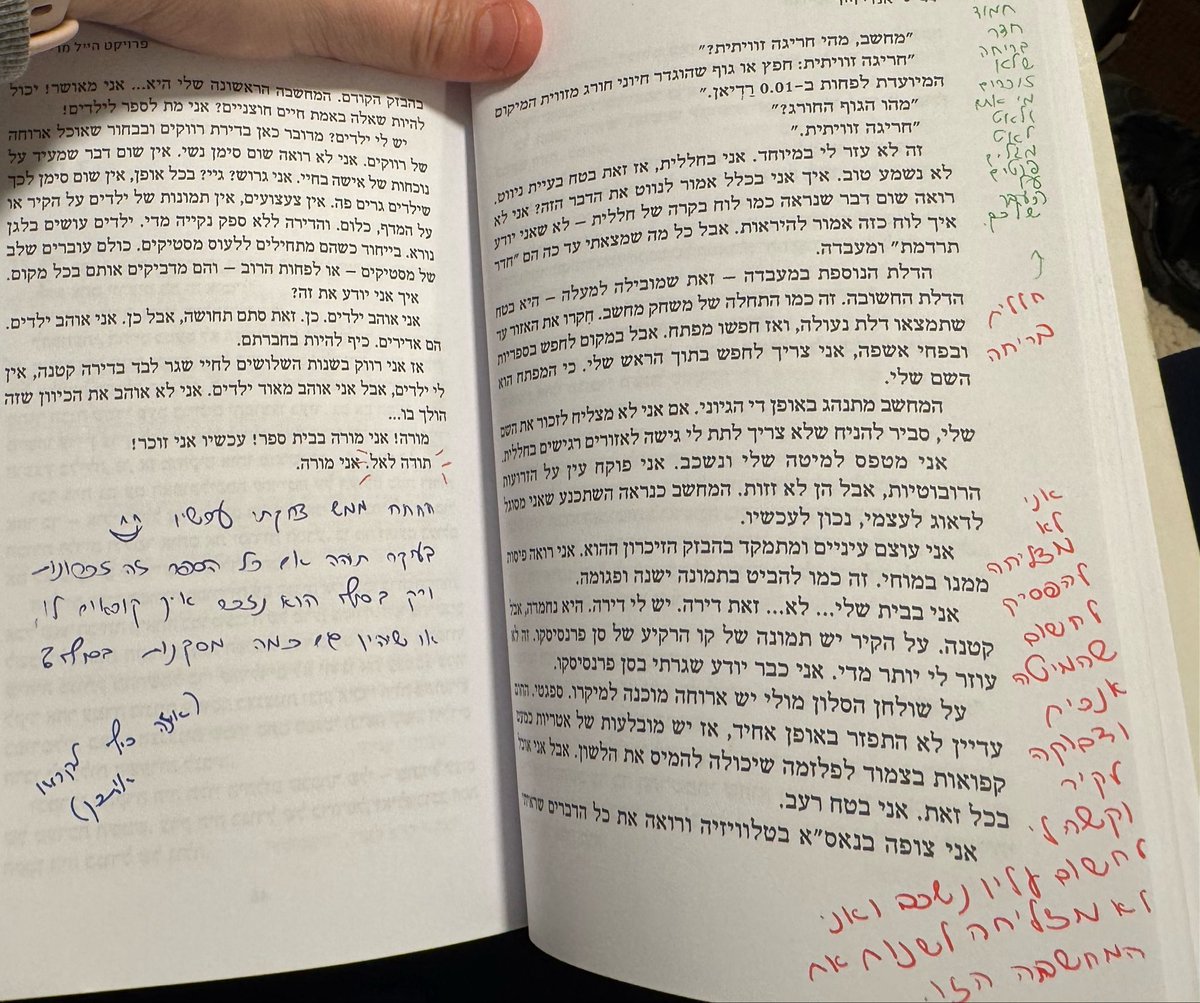 "מחשב, מהי חריגה זוויתית?"
"חריגה זוויתית: חפץ או גוף שהוגדר חיוני חורג מזווית המיקום
המיועדת לפחות ב–0.01 רַדְיאן."
"מהו הגוף החורג?"
"חריגה זוויתית."
זה לא עזר לי במיוחד. אני בחללית, אז זאת בטח בעיית ניווט.
לא נשמע טוב. איך אני בכלל אמור לנווט את הדבר הזה? אני לא
רואה שום דבר שנראה כמו לוח בקרה של חללית – לא שאני יודע
איך לוח כזה אמור להיראות. אבל כל מה שמצאתי עד כה הם "חדר
תרדמת" ומעבדה.
הדלת הנוספת במעבדה – זאת שמובילה למעלה – היא בטח
הדלת החשובה. זה כמו התחלה של משחק מחשב. חִקרו את האזור עד
שתמצאו דלת נעולה, ואז חפשו מפתח. אבל במקום לחפש בספריות
ובפחי אשפה, אני צריך לחפש בתוך הראש שלי. כי המפתח הוא
השם שלי.
המחשב מתנהג באופן די הגיוני. אם אני לא מצליח לזכור את השם
שלי, סביר להניח שלא צריך לתת לי גישה לאזורים רגישים בחללית.
אני מטפס למיטה שלי ונשכב. אני פוקח עין על הזרועות
הרובוטיות, אבל הן לא זזות. המחשב כנראה השתכנע שאני מסוגל
לדאוג לעצמי, נכון לעכשיו.
אני עוצם עיניים ומתמקד בהבזק הזיכרון ההוא. אני רואה פיסות
ממנו במוחי. זה כמו להביט בתמונה ישנה ופגומה.
אני בבית שלי... לא... זאת דירה. יש לי דירה. היא נחמדה, אבל
קטנה. על הקיר יש תמונה של קו הרקיע של סן פרנסיסקו. זה לא
עוזר לי יותר מדי. אני כבר יודע שגרתי בסן פרנסיסקו.
על שולחן הסלון מולי יש ארוחה מוכנה למיקרו. ספגטי. החום
עדיין לא התפזר באופן אחיד, אז יש מובלעות של אטריות כמעט
קפואות בצמוד לפלזמה שיכולה להמיס את הלשון. אבל אני אוכל
בכל זאת. אני בטח רעב.
אני צופה בנאס"א בטלוויזיה ורואה את כל הדברים שראיתי
חמוד
חדר
בריחה
שלאט
לאט
חללית
בריחה
אני
לא
מצליחה
להפסיק
לחשוב
שהמיטה
אנכית
ודבוקה
לקיר
וקשה לי
לחשוב עליו נשכב ואני
לא מצליחה לשנות את
המחשבה הזו.
פרויקט הייל מר
בהבזק הקודם. המחשבה הראשונה שלי היא... אני מאושר! יכול
להיות שאלה באמת חיים חוצניים? אני מת לספר לילדים!
יש לי ילדים? מדובר כאן בדירת רווקים ובבחור שאוכל ארוחה
של רווקים. אני לא רואה שום סימן נשי. אין שום דבר שמעיד על
נוכחות של אישה בחיי. אני גרוש? גיי? בכל אופן, אין שום סימן לכך
שילדים גרים פה. אין צעצועים, אין תמונות של ילדים על הקיר או
על המדף, כלום. והדירה ללא ספק נקייה מדי. ילדים עושים בלגן
נורא. בייחוד כשהם מתחילים ללעוס מסטיקים. כולם עוברים שלב
של מסטיקים – או לפחות הרוב – והם מדביקים אותם בכל מקום.
איך אני יודע את זה?
אני אוהב ילדים. כן. זאת סתם תחושה, אבל כן. אני אוהב ילדים.
הם אדירים. כיף להיות בחברתם.
אז אני רווק בשנות השלושים לחיי שגר לבד בדירה קטנה, אין
לי ילדים, אבל אני אוהב מאוד ילדים. אני לא אוהב את הכיוון שזה
הולך בו...
מורה! אני מורה בבית ספר! עכשיו אני זוכר!
תודה לאל. אני מורה.
חחחח ממש צחקתי עכשיו
בעיקר תוהה אם כל הספר זה זכרונות
ורק בסוף הוא נזכר איך קוראים לו,
או שיהיו גם כמה מסקנות בסוף?
(איזה כיף לקרוא
אותך)